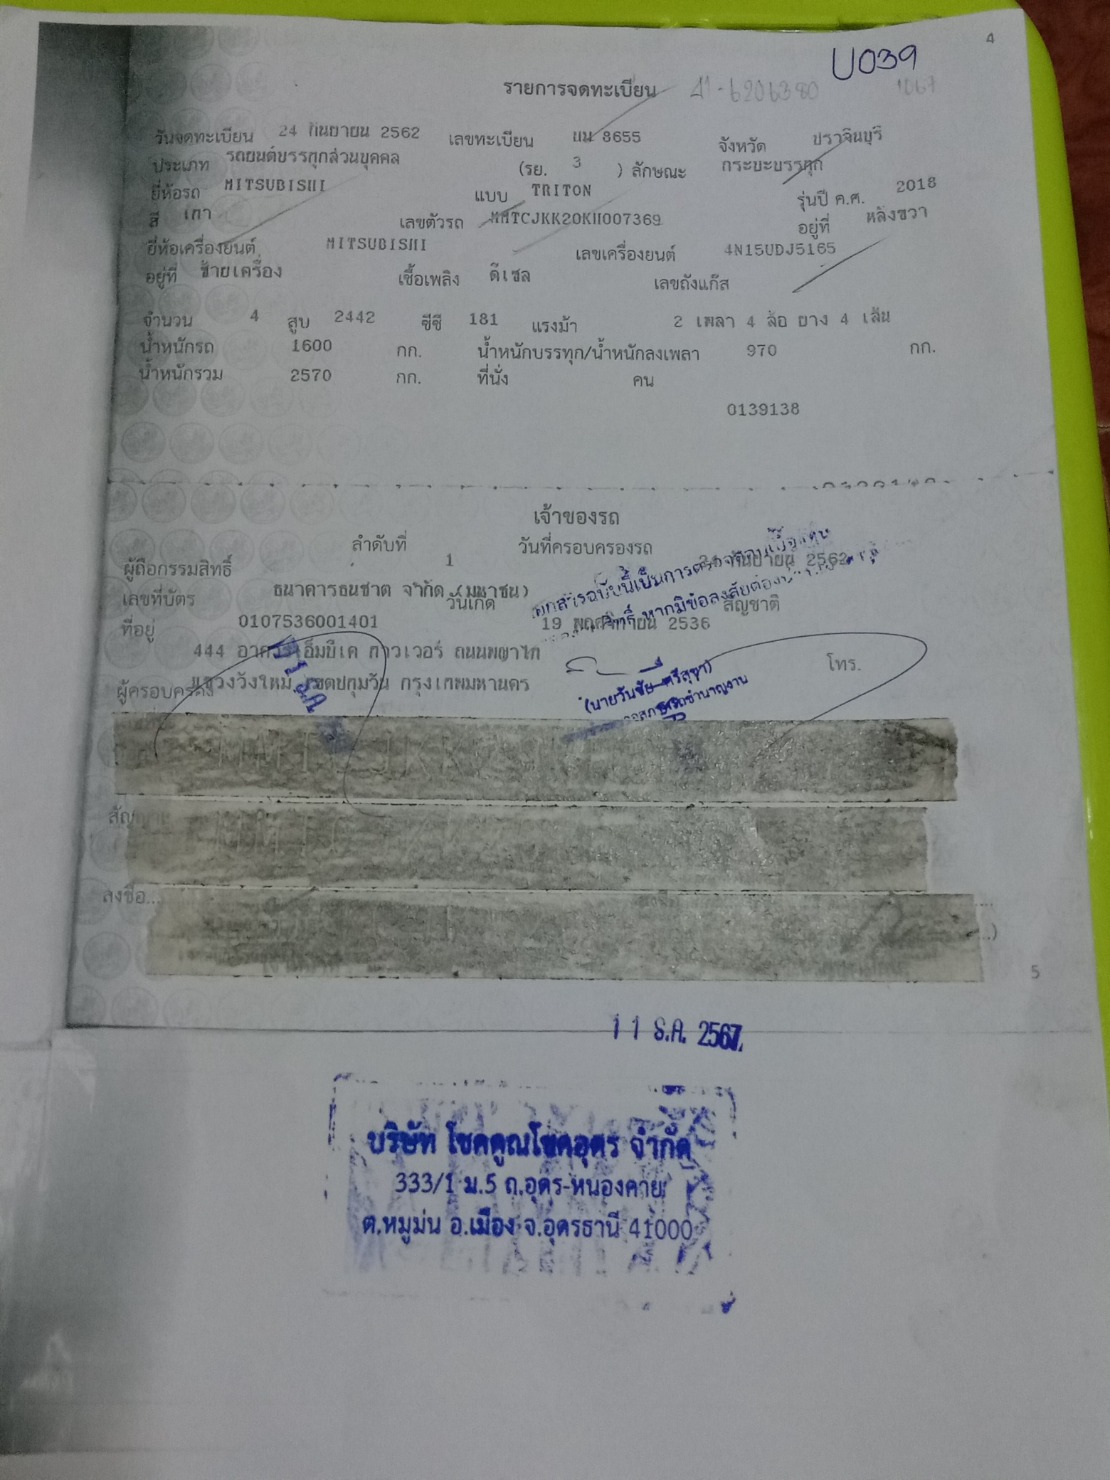 4
U039
รายการจดทะเบียน 41-6206380
วันจดทะเบียน 24 กันยายน 2562 เลขทะเบียน 8655 จังหวัด ปราจีนบุรี
ประเภท รถยนต์บรรทุกส่วนบุคคล (รย. 3 ) ลักษณะ กระบะบรรทุก
ยี่ห้อรถ MITSUBISHI แบบ TRITON รุ่นปี ค.ศ. 2018
สี เทา เลขตัวรถ MMTCJKK20KH007369 อยู่ที่ หลังขวา
ยี่ห้อเครื่องยนต์ MITSUBISHI เลขเครื่องยนต์ 4N15UDJ5165
อยู่ที่ ซ้ายเครื่อง เชื้อเพลิง ดีเซล เลขถังแก๊ส
จำนวน 4 สูบ 2442 ซีซี 181 แรงม้า 2 เพลา 4 ล้อ ยาง 4 เส้น
น้ำหนักรถ 1600 กก. น้ำหนักบรรทุก/น้ำหนักลงเพลา 970 กก.
น้ำหนักรวม 2570 กก. ที่นั่ง คน
0139138
เจ้าของรถ
ลำดับที่ 1 วันที่ครอบครองรถ กันยายน 2562
ผู้ถือกรรมสิทธิ์ ธนาคารธนชาต จำกัด (มหาชน)
เลขที่บัตร 0107536001401 วันเกิด 19 พฤศจิกายน 2536 สัญชาติ
ที่อยู่ 444 อาคารเอ็มบีเค ทาวเวอร์ ถนนพญาไท
แขวงวังใหม่ เขตปทุมวัน กรุงเทพมหานคร โทร.
ผู้ครอบครอง
(นายวันชัย ศรีสุขา)
ลงชื่อ...
5
11 ธ.ค. 2567
บริษัท โชคคูณโชคอุดร จำกัด
333/1 ม.5 ถ.อุดร-หนองคาย
ต.หมูม่น อ.เมือง จ.อุดรธานี 41000